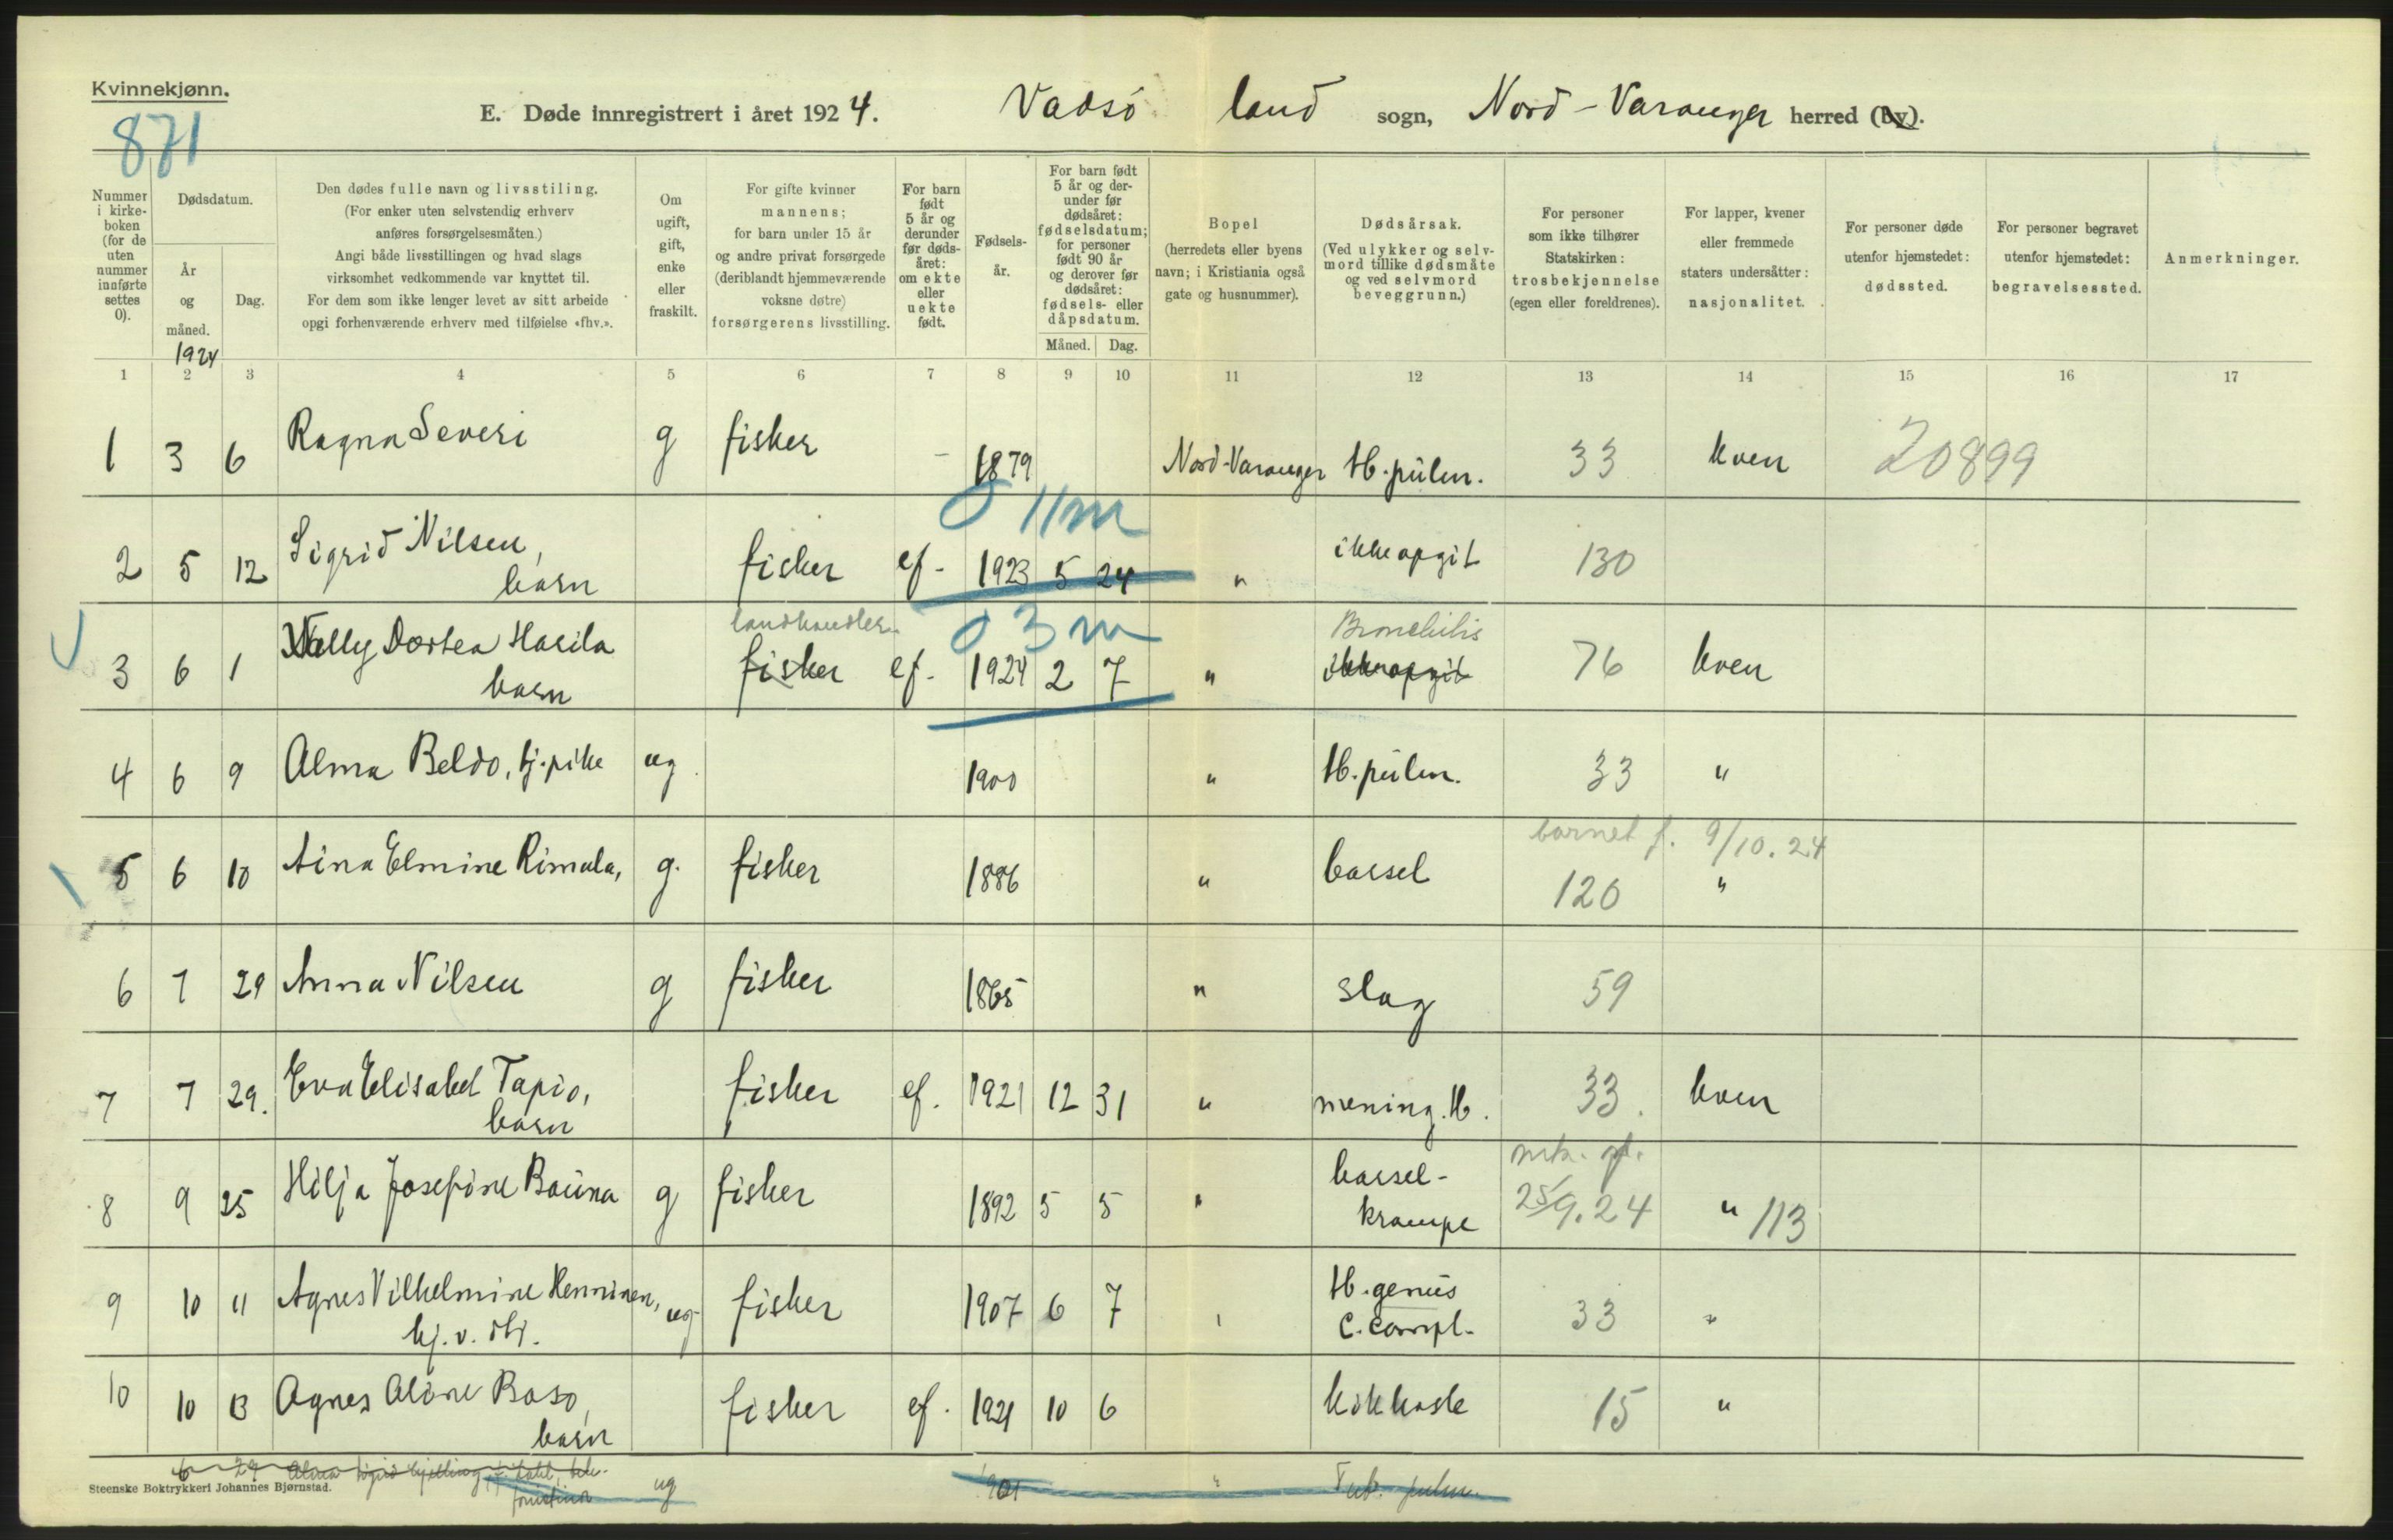 Kvinnekjønn.
871
E. Døde innregistrert i året 1924. Vadsö land sogn, Nord-Varanger herred (by).
Nummer i kirkeboken (for de uten nummer innførte settes 0).
Dødsdatum.
År og måned.
1924
Dag.
Den dødes fulle navn og livsstiling.
(For enker uten selvstendig erhverv anføres forsørgelsesmåten.)
Angi både livsstillingen og hvad slags virksomhet vedkommende var knyttet til.
For dem som ikke lenger levet av sitt arbeide opgi forhenværende erhverv med tilføielse «fhv.».
Om ugift, gift, enke eller fraskilt.
For gifte kvinner mannens; for barn under 15 år og andre privat forsørgede (deriblandt hjemmeværende voksne døtre) forsørgerens livsstilling.
For barn født 5 år og derunder før dødsåret: om ekte eller uekte født.
Fødselsår.
For barn født 5 år og derunder før dødsåret: fødselsdatum; for personer født 90 år og derover før dødsåret: fødsels- eller dåpsdatum.
Måned. Dag.
Bopel (herredets eller byens navn; i Kristiania også gate og husnummer).
Dødsårsak. (Ved ulykker og selvmord tillike dødsmåte og ved selvmord beveggrunn.)
For personer som ikke tilhører Statskirken: trosbekjennelse (egen eller foreldrenes).
For lapper, kvener eller fremmede staters undersåtter: nasjonalitet.
For personer døde utenfor hjemstedet: dødssted.
For personer begravet utenfor hjemstedet: begravelsessted.
Anmerkninger.
1 2 3 4 5 6 7 8 9 10 11 12 13 14 15 16 17
1 3 6 Ragna Severi g fisker - 1879 Nord-Varanger tb. pulm. 33 kven 20899
0 11m
2 5 12 Sigrid Nilsen, barn fisker ef. 1923 5 24 " ikke opgit 130
landhandler 0 3m Bronchitis
3 6 1 Nelly Dortea Harila barn fisker ef. 1924 2 7 " ikke opgit 76 kven
4 6 9 Alma Beldo, tj.pike ug. 1900 " tb. pulm. 33 "
barnet f. 9/10.24
5 6 10 Aina Elmine Rimala, g. fisker 1886 " barsel 120 "
6 7 29 Anna Nilsen g fisker 1865 " slag 59
7 7 29. Eva Elisabet Tapio, barn fisker ef. 1921 12 31 " mening. tb. 33. kven
8 9 25 Hilja Josefine Bauna g fisker 1892 5 5 " barsel-krampe 25/9.24 " 113
9 10 11 Agnes Vilhelmine Henninen, hj.v. dtr. ug fisker 1907 6 7 " tb. genus c. compl. 33 "
10 10 13 Agnes Aline Baso, barn fisker ef. 1921 10 6 kikhoste 15 "
6 29 Alma ug 1901 " Tub. pulm.
Steenske Boktrykkeri Johannes Bjørnstad.